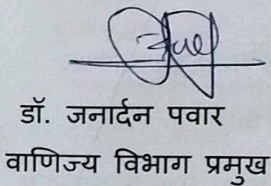 डॉ. जनार्दन पवार
वाणिज्य विभाग प्रमुख